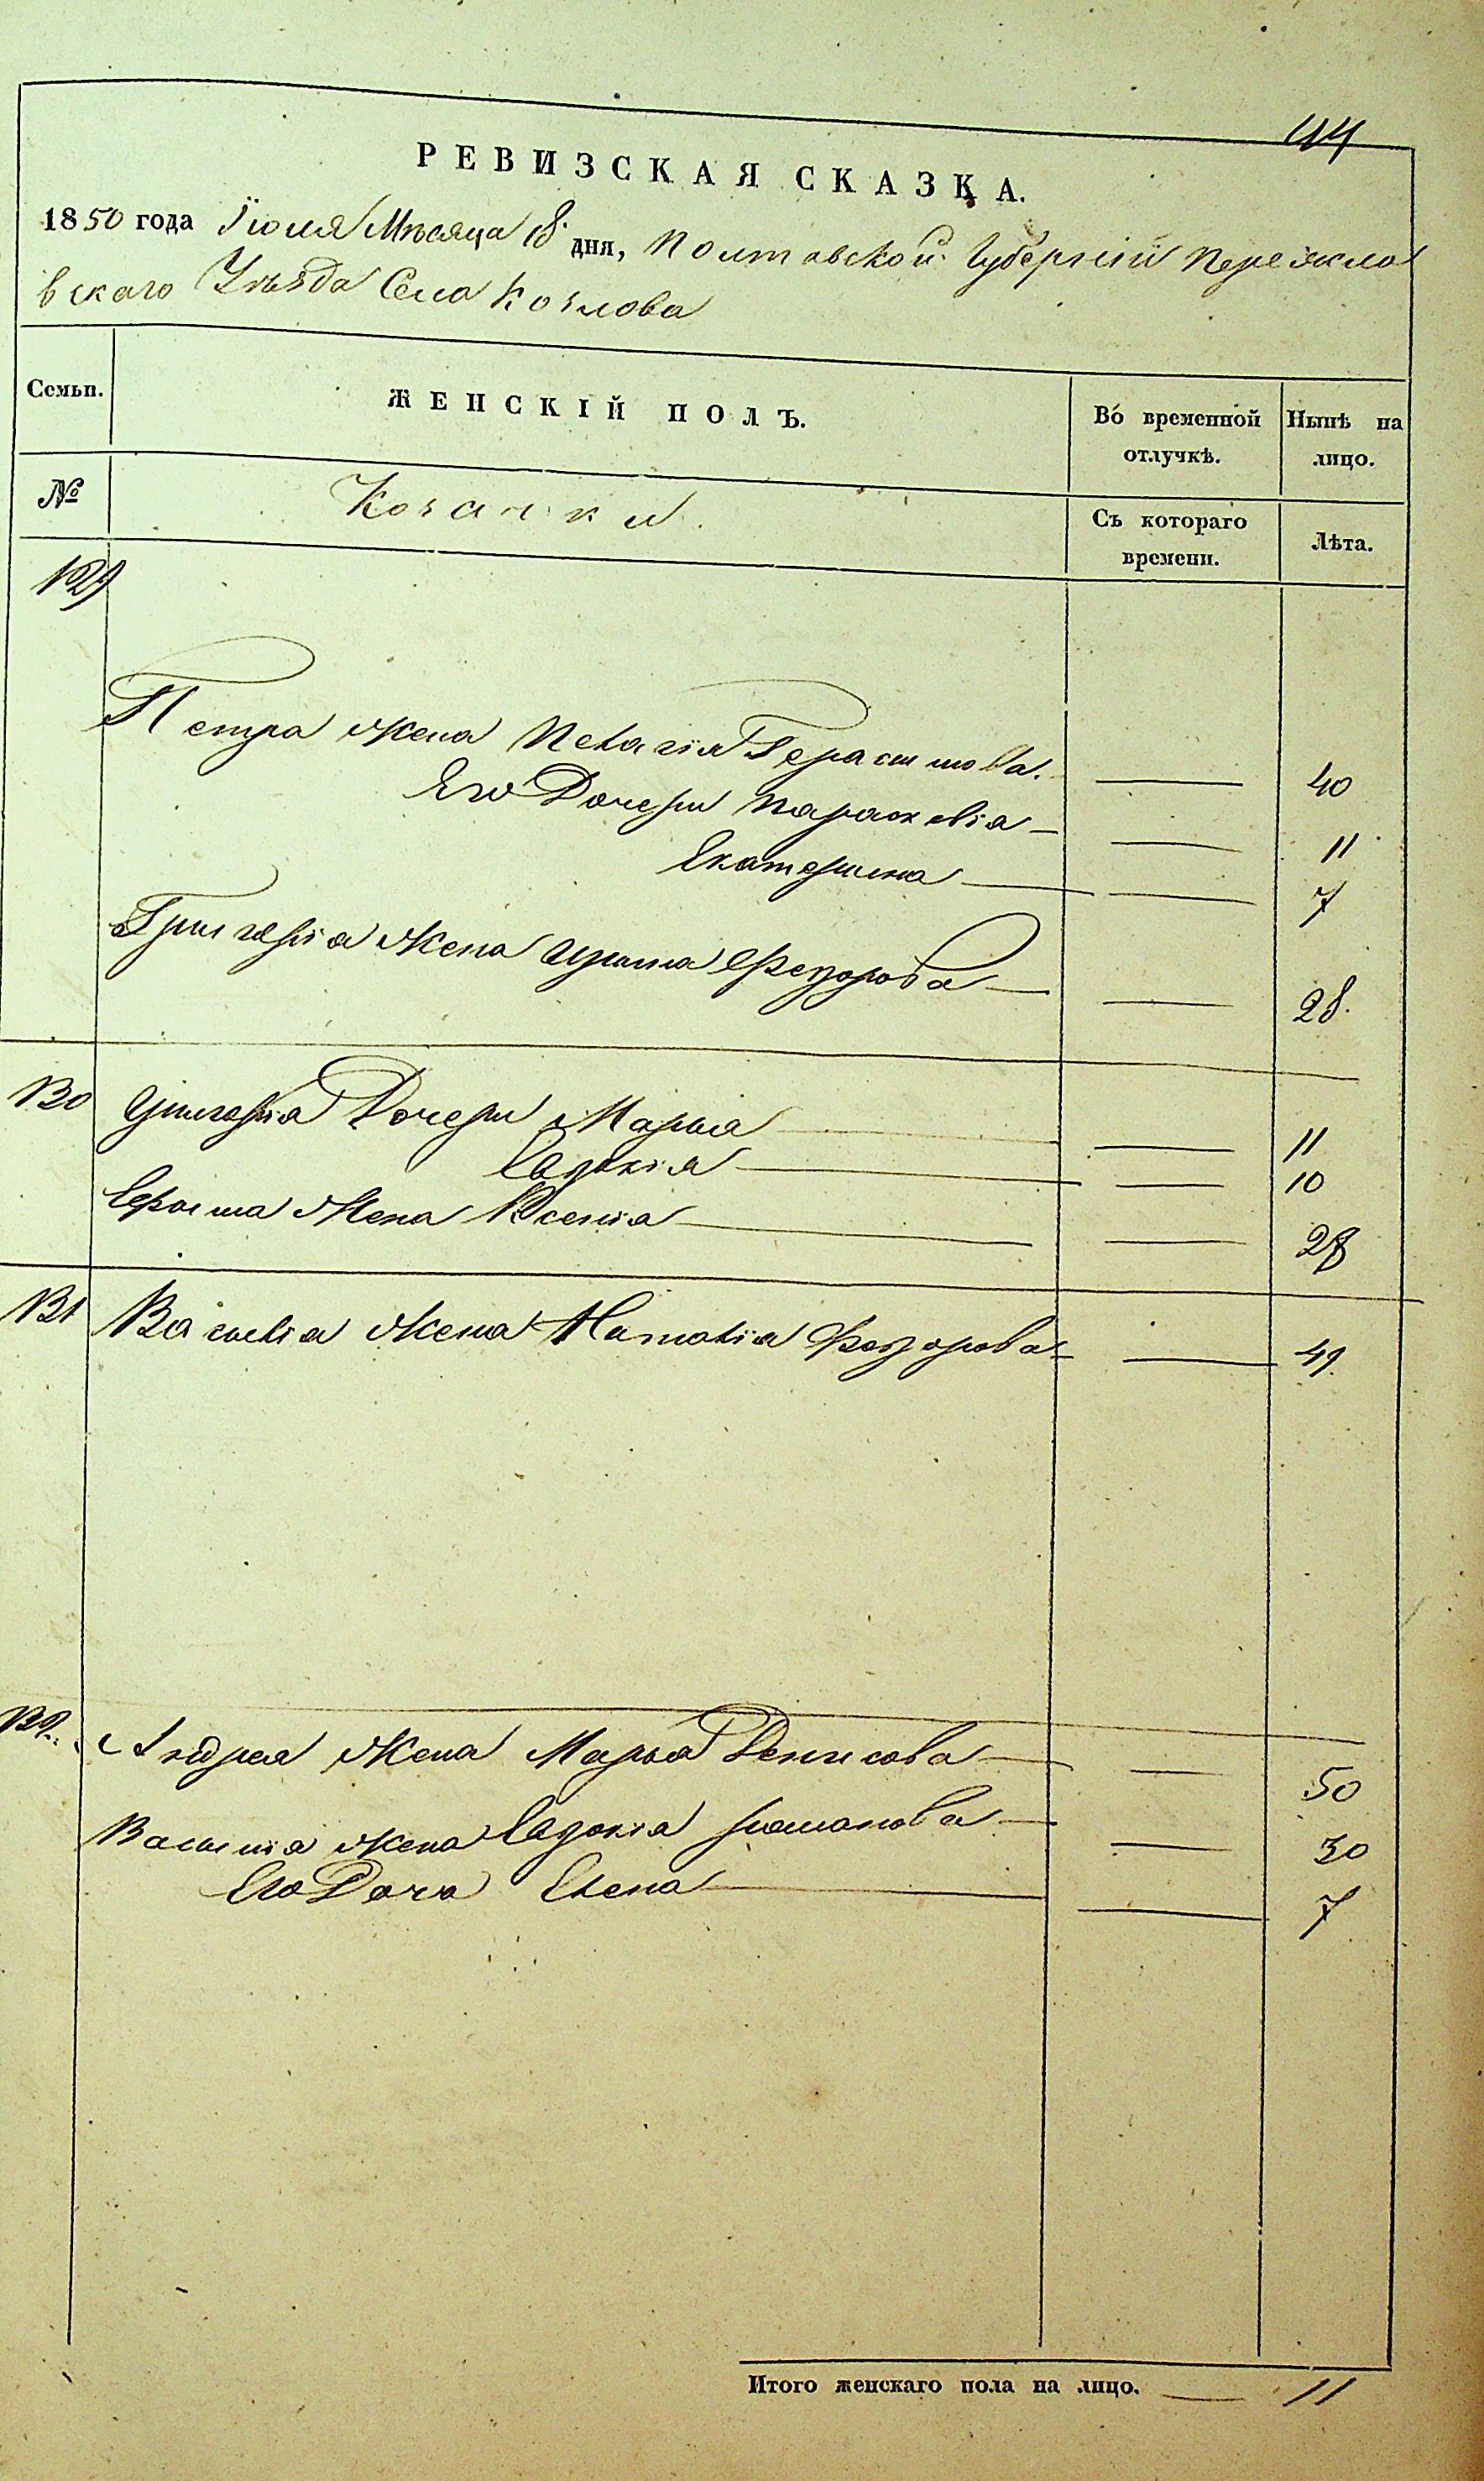 44
РЕВИЗСКАЯ СКАЗКА.
1850 года Іюля Мѣсяца 18 дня, Полтавской Губерніи Переясла
вскаго Уѣзда Села Козлова
Семьи. ЖЕНСКІЙ ПОЛЪ. Во временной отлучкѣ. Нынѣ на лицо.
№ Козачки. Съ котораго времени. Лѣта.
129
Петра Жена Пелагія Герасимова. 40
Его Дочери Параскевія 11
Екатерина 7
Григорія Жена Ирина Федорова 28.
130 Григорія Дочери Марья 11
Евдокія 10
Ефима Жена Ксенія 28
131 Василія Жена Наталія Федорова 49.
132. Андрея Жена Марья Денисова 50
Василія жена Евдокія Романова 30
Его Дочь Елена 7
Итого женскаго пола на лицо. 11